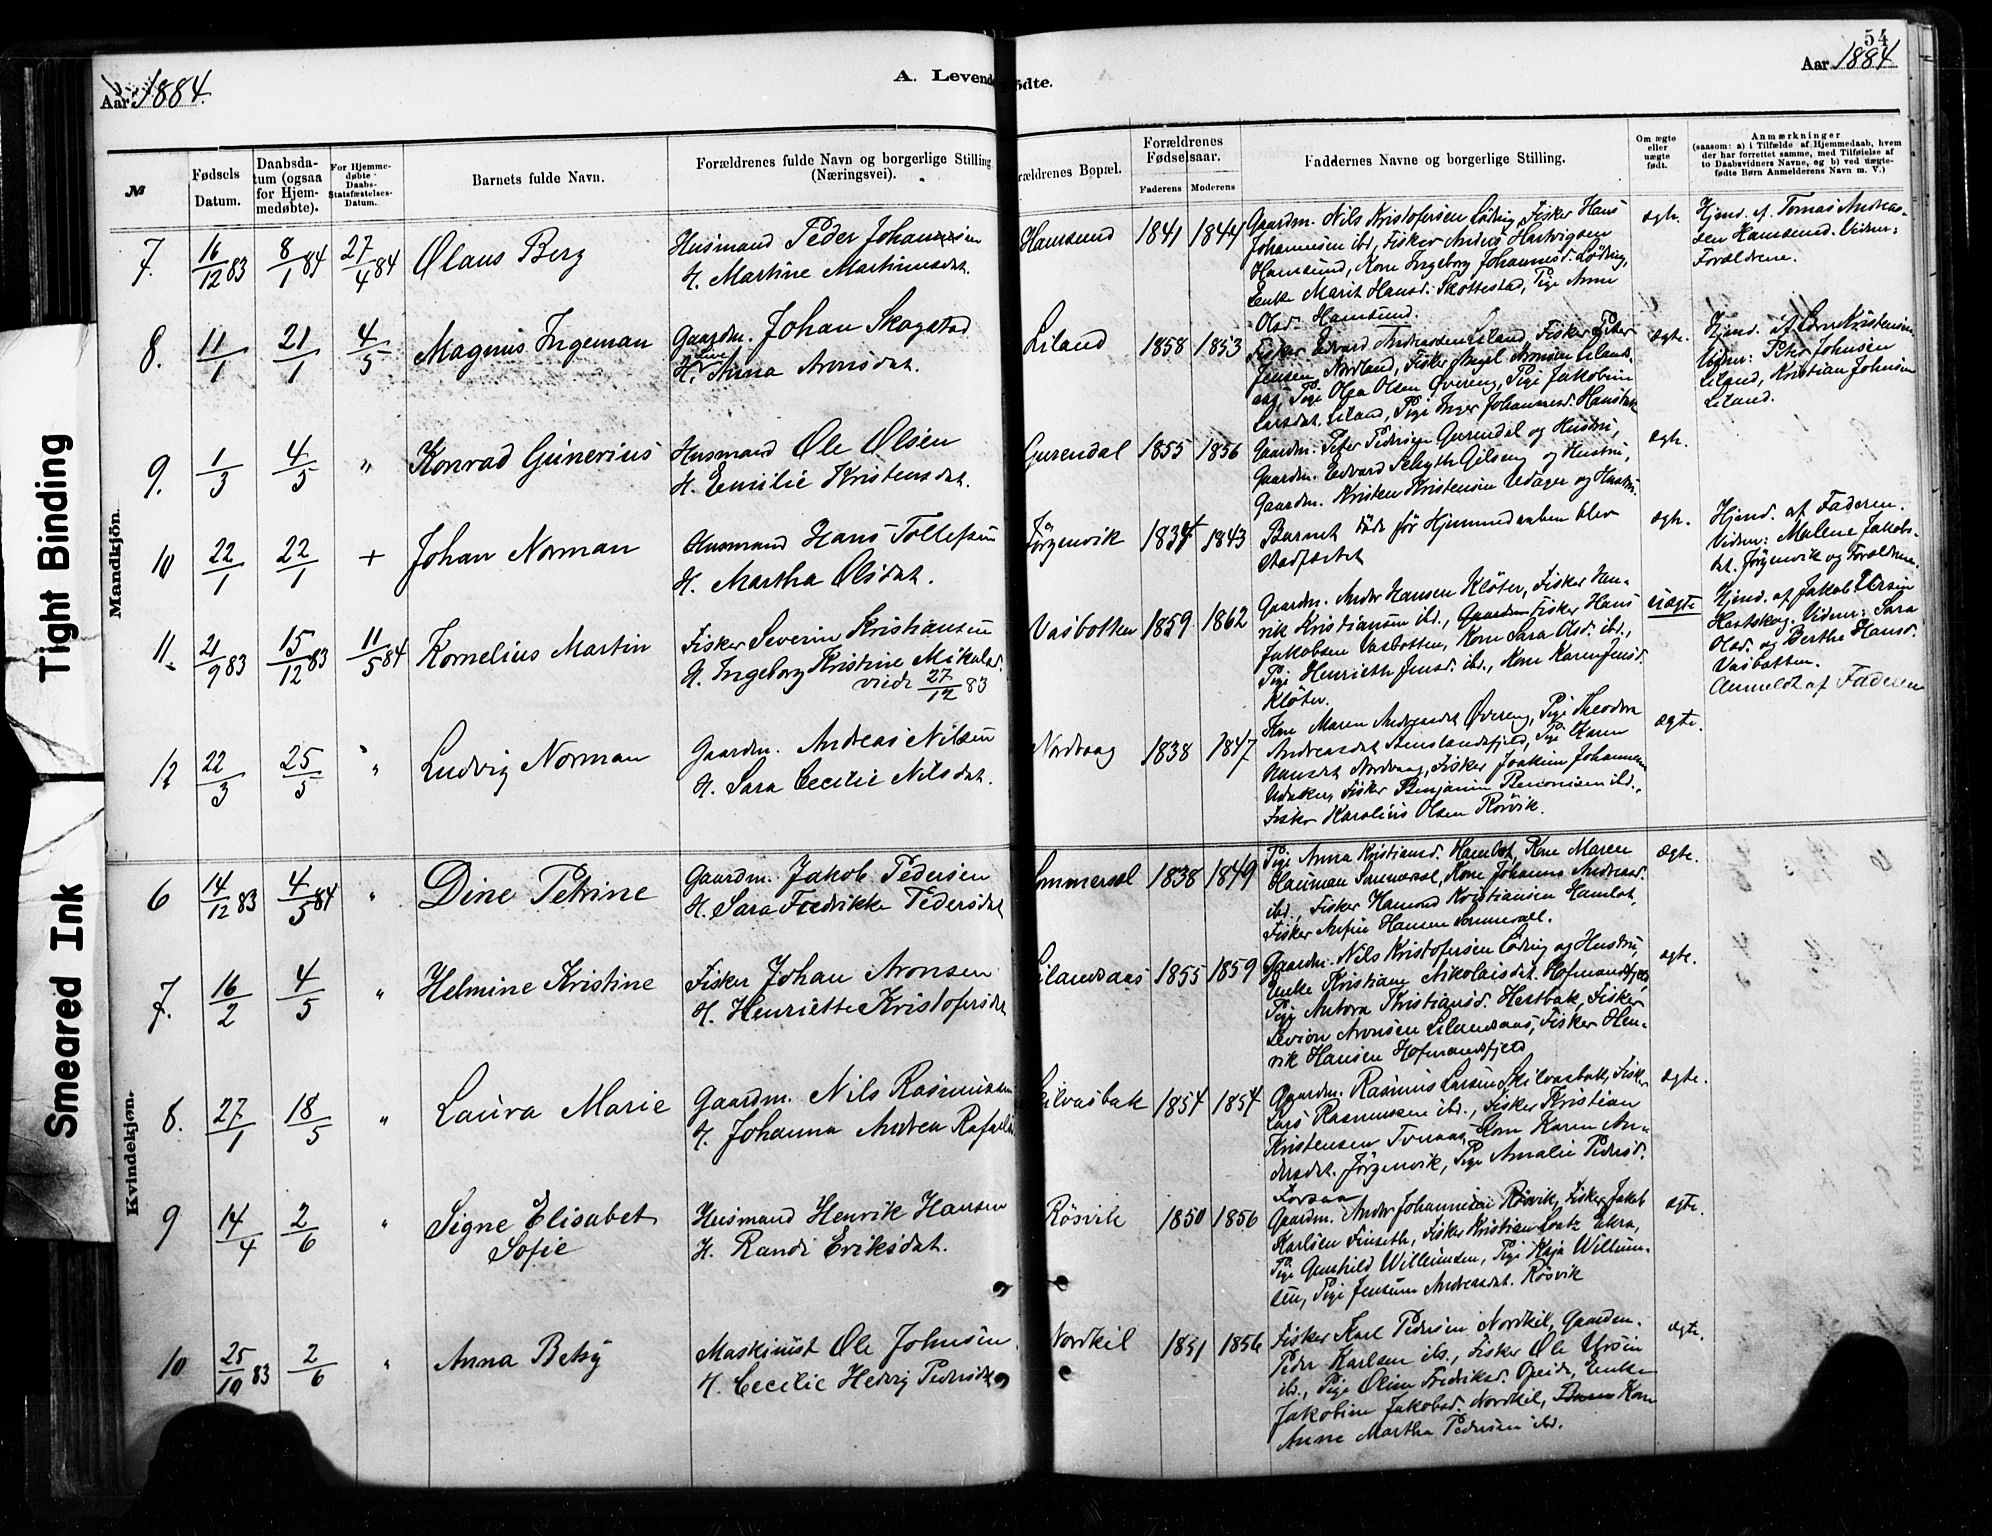 54
Aar 1884.
A. Levende
ödte.
Aar 1884
№
Fødsels Datum.
Daabsdatum (ogsaa for Hjemmedøbte).
For Hjemmedöbte Daabs-Statsfæstelses-Datum.
Barnets fulde Navn.
Forældrenes fulde Navn og borgerlige Stilling (Næringsvei).
rældrenes Bopæl.
Forældrenes Fødselsaar.
Faderens
Moderens
Faddernes Navne og Borgerlige Stilling.
Om ægte eller uægte født.
Anmærkninger
(saasom: a) i Tilfælde af Hjemmedaab, hvem der har forrettet samme, med Tilføielse af Daabsvidners Navne, og b) ved uægtefødte Børn Anmelderens Navn m. V.)
Mandkjön.
7. 16/12 83 8/1 84 27/4 84 Olaus Berg
Husmand Peder Johansen
H. Martine Martinusdat.
Hamsund 1841 1844
Gaardm. Nils Kristofersen Löding, Fisker Hans
Johannesen ibd., Fisker Andreas Hartvigsen
Hamsund, Kone Ingeborg Johannesd. Löding,
Enke Marit Hansd. Skottestad, Pige Anne
Olsd. Hamsund.
ægte.
Hjemd. af Tomas Andreas-
sen Hamsund. Vidner:
Forældrene.
8. 11/1 21/1 4/5 Magnus Ingeman
Gaardm. Johan Skogstad
H. Anna Aronsdat.
Liland 1858 1853
Fisker Edvard Andreassen Liland, Fisker Peter
Jensen Nordland, Fisker Aronsen Lilands-
aas, Pige Olga Olsen Øvereng, Pige Jakobine
Larsdat. Liland, Pige Inger Johannesd. Hanebak
ægte.
Hjemd. af
Vidner: Peter Johnsen
Liland, Kristian Johnsen
Liland.
9. 1/3 4/5 " Konrad Gunerius
Husmand Ole Olsen
H. Emilie Kristensdat.
Gurendal 1855 1856
Gaardm. Peter Pedersen Gurendal og Hustru,
Gaardm. Edvard Schytte Gilseng og Hustru,
Gaardm. Kristen Kristensen Udager og Hustru.
ægte.
10 22/1 22/1 + Johan Norman
Husmand Hans Tollefsen
H. Martha Olsdat.
Jørgenvik 1834 1843
Barnet døde før Hjemmedaaben blev
stadfæstet
ægte.
Hjemd. af Faderen.
Vidner: Malene Jakobs-
dat. Jørgenvik og Forældrene.
11. 21/9 83 15/12 83 11/5 84 Kornelius Martin
Fisker Severin Kristiansen
H. Ingeborg Kristine Mikalsd.
viede 27/12 83
Vasbotten 1859 1862
Gaardm. Anders Hansen Klöter, Fisker Hen-
rik Kristiansen ibd., Fisker Hans
Jakobsen Vasbotten, Kone Sara Olsd. ibd.,
Pige Henriette Jensd. ibd., Kone Karen Jensd.
Klöter.
uægte
Hjemd. af Jakob
Hestskog. Vidner: Sara
Olsd. og Berthe Hansd.
Vasbotten.
Anmeldt af Faderen
12 22/3 25/5 " Ludvig Norman
Gaardm. Andreas Nilsen
H. Sara Cecilie Nilsdat.
Nordvaag 1838 1847
Kone Maren Andreasdat Øvereng, Pige Theodora
Andreasdat Stenslandsfjeld, Pige Karen
Hansdat Nordvaag, Fisker Joakim Johannesen
Udaker, Fisker Benjamin Benonisen ibd.,
Fisker Karolius Olsen Rörvik.
ægte.
Kvindekjøn.
6 14/12 83 4/5 84 " Dine Petrine
Gaardm. Jakob Pedersen
H. Sara Fredrikke Pedersdat
Sommersel 1838 1849
Pige Anna Kristiansd. Hamlot, Kone Maren
Hauman Sommersel, Kone Johanna Andreasd.
ibd., Fisker Hamond Kristiansen Hamlot,
Fisker Arfin Hansen Sommersel.
ægte.
7. 16/2 4/5 " Helmine Kristine
Fisker Johan Aronsen
H. Henriette Kristofersdat
Lilandsaas 1855 1859
Gaardm. Nils Kristofersen Löding og Hustru,
Enke Kristiane Nikolaisdat. Hofmandsfjeld,
Pige Antora Kristiansd. Hestbak, Fisker
Levion Aronsen Lilandsaas, Fisker Hen-
rik Hansen Hofmandsfjeld
ægte.
8. 27/1 18/5 " Laura Marie
Gaardm. Nils Rasmussen
H. Johanna Andrea Rafaels
Skilvasbak 1854 1854
Gaardm. Rasmus Larsen Skilvasbak, Fisker
Lars Rasmussen ibd., Fisker Kristian
Kristensen Toraas, Kone Karen An-
dersdat. Jörgenvik, Pige Amalie Pedersd.
Forsaa
ægte.
9 14/4 2/6 " Signe Elisabet
Sofie
Husmand Henrik Hansen
H. Randi Eriksdat.
Rösvik 1850 1856
Gaardm. Anders Johannesen Rösvik, Fisker Jakob
Karlsen Finseth, Fisker Kristian Ekra,
Pige Gunhild Willumsen, Pige Kaja Willum-
sen, Pige Jensine Andreasdat. Rösvik
ægte.
10 25/10 83 2/6 " Anna Betsy
Maskinist Ole Johnsen
H. Cecilie Hedvig Pedersdat
Nordkil 1851 1856
Fisker Karl Pedersen Nordkil, Gaardm.
Peder Karlsen ibd., Fisker Ole
ibd., Pige Oline Fredriksd. Opeide, Enke
Jakobine Jakobsd. Nordkil, Kone
Anne Martha Pedersen ibd.
ægte.
Tight Binding
Smeared Ink